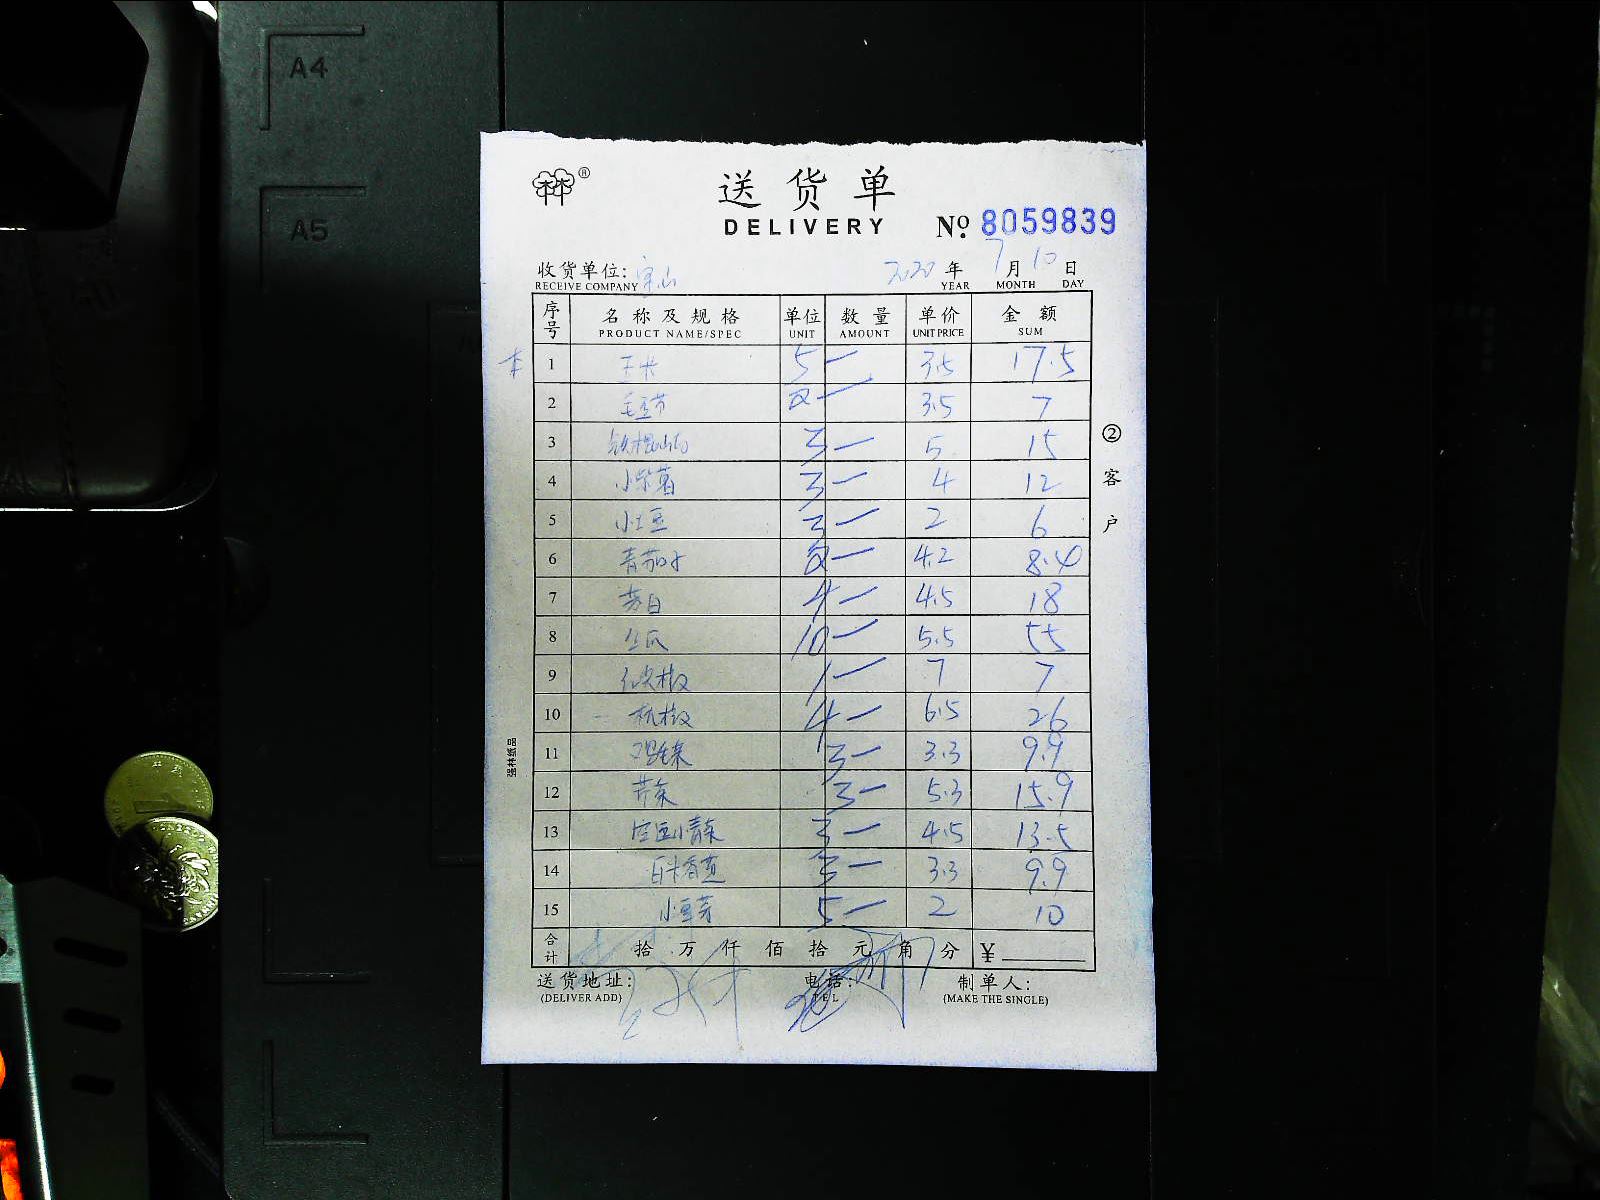 A4
A5
®
送货单
DELIVERY
№ 8059839
收货单位: 宝山 2020年7月10日
RECEIVE COMPANY YEAR MONTH DAY
序号 名称及规格 单位 数量 单价 金额
PRODUCT NAME/SPEC UNIT AMOUNT UNIT PRICE SUM
1 玉米 5 3.5 17.5
2 毛豆节 2 3.5 7
3 铁棍山药 3 5 15
4 小紫薯 3 4 12
5 小土豆 3 2 6
6 青茄子 2 4.2 8.4
7 茭白 4 4.5 18
8 丝瓜 10 5.5 55
9 红尖椒 1 7 7
10 杭椒 4 6.5 26
11 鸡毛菜 3 3.3 9.9
12 芹菜 3 5.3 15.9
13 小青菜 3 4.5 13.5
14 3 3.3 9.9
15 小豆芽 5 2 10
合计 拾万仟佰拾元角分 ¥
送货地址: 电话: 制单人:
(DELIVER ADD) TEL (MAKE THE SINGLE)
②客户
强林纸品